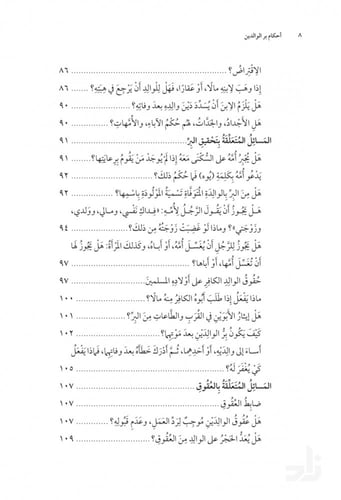 ٨ أحكام بر الوالدين
الِاقْتِرَاضُ؟ ٨٦
إِذَا وَهَبَ لِابْنِهِ مَالًا، أَوْ عَقَارًا، فَهَلْ لِلْوَالِدِ أَنْ يَرْجِعَ فِي هِبَتِهِ؟ ٨٦
هَلْ يَلْزَمُ الِابْنَ أَنْ يُسَدِّدَ دَيْنَ وَالِدِهِ بَعْدَ وَفَاتِهِ؟ ٩٠
هَلِ الْأَجْدَادُ، وَالْجَدَّاتُ، لَهُمْ حُكْمُ الْآبَاءِ، وَالْأُمَّهَاتِ؟ ٩٠
الْمَسَائِلُ الْمُتَعَلِّقَةُ بِتَحْقِيقِ الْبِرِّ ٩١
هَلْ يُجْبِرُ أُمَّهُ عَلَى السُّكْنَى مَعَهُ إِذَا لَمْ يُوجَدْ مَنْ يَقُومُ بِرِعَايَتِهَا؟ ٩١
يَدْعُو أُمَّهُ بِكَلِمَةِ (يُوه) فَمَا حُكْمُ ذَلِكَ؟ ٩٢
هَلْ مِنَ الْبِرِّ بِالْوَالِدَةِ الْمُتَوَفَّاةِ تَسْمِيَةُ الْمَوْلُودَةِ بِاسْمِهَا؟ ٩٢
هَلْ يَجُوزُ أَنْ يَقُولَ الرَّجُلُ لِأُمِّهِ: «فِدَاكِ نَفْسِي، وَمَالِي، وَوَلَدِي،
وَزَوْجَتِي»؟ وَمَاذَا لَوْ غَضِبَتْ زَوْجَتُهُ مِنْ ذَلِكَ؟ ٩٤
هَلْ يَجُوزُ لِلرَّجُلِ أَنْ يُغَسِّلَ أُمَّهُ، أَوْ أَبَاهُ، وَكَذَلِكَ الْمَرْأَةُ: هَلْ يَجُوزُ لَهَا
أَنْ تُغَسِّلَ أُمَّهَا، أَوْ أَبَاهَا؟ ٩٧
حُقُوقُ الْوَالِدِ الْكَافِرِ عَلَى أَوْلَادِهِ الْمُسْلِمِينَ ٩٧
مَاذَا يَفْعَلُ إِذَا طَلَبَ أَبُوهُ الْكَافِرُ مِنْهُ مَالًا؟ ١٠٠
هَلْ إِيثَارُ الْأَبَوَيْنِ فِي الْقُرَبِ وَالطَّاعَاتِ مِنَ الْبِرِّ؟ ١٠١
كَيْفَ يَكُونُ بِرُّ الْوَالِدَيْنِ بَعْدَ مَوْتِهِمَا؟ ١٠٢
أَسَاءَ إِلَى وَالِدَيْهِ، أَوْ أَحَدِهِمَا، ثُمَّ أَدْرَكَ خَطَأَهُ بَعْدَ وَفَاتِهِمَا، فَمَاذَا يَفْعَلُ
كَيْ يُغْفَرَ لَهُ؟ ١٠٥
الْمَسَائِلُ الْمُتَعَلِّقَةُ بِالْعُقُوقِ ١٠٧
ضَابِطُ الْعُقُوقِ ١٠٧
هَلْ عُقُوقُ الْوَالِدَيْنِ مُوجِبٌ لِرَدِّ الْعَمَلِ، وَعَدَمِ قَبُولِهِ؟ ١٠٧
هَلْ يُعَدُّ الْحَجْرُ عَلَى الْوَالِدِ مِنَ الْعُقُوقِ؟ ١٠٩
زاد